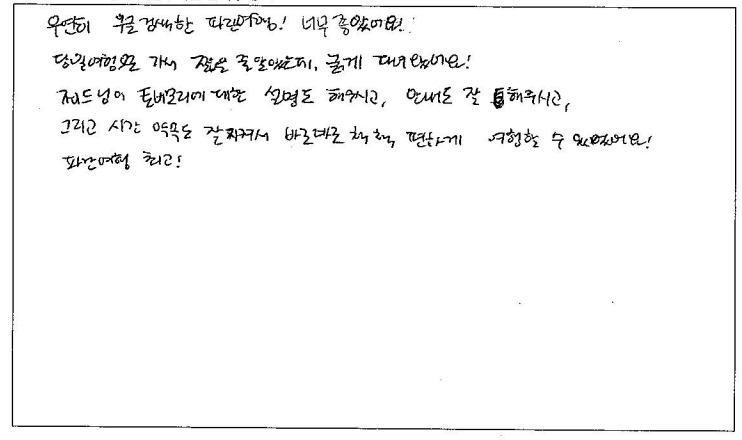 우연히 부글 검색한 파란여행! 너무 좋았어요!
당일여행으로 가서 짧을 줄 알았는데, 굵게 다녀왔어요!
제드님이 토버모리에 대한 설명도 해주시고, 안내도 잘 해주시고,
그리고 시간 약속도 잘 지켜서 바로바로 척척 편하게 여행할 수 있었어요!
파란여행 최고!